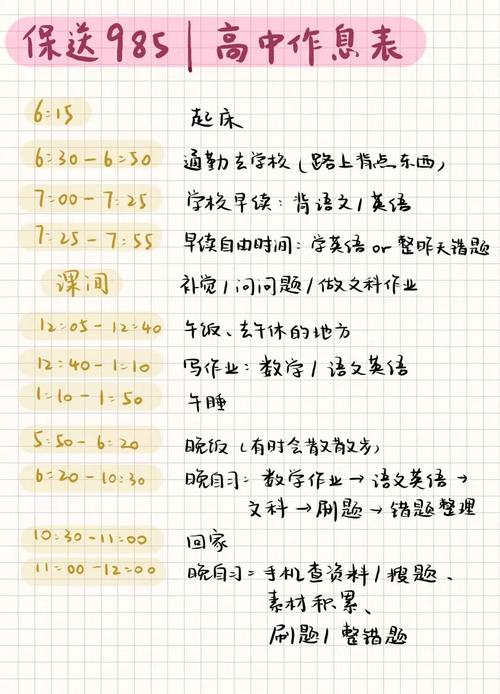 保送985 | 高中作息表
6:15 起床
6:30-6:50 通勤去学校(路上背点东西)
7:00-7:25 学校早读: 背语文/英语
7:25-7:55 早读自由时间: 学英语 or 整昨天错题
课间 补觉/问问题/做文科作业
12:05-12:40 午饭、去午休的地方
12:40-1:10 写作业: 数学/语文英语
1:10-1:50 午睡
5:50-6:20 晚饭(有时会散散步)
6:20-10:30 晚自习: 数学作业→语文英语→
文科→刷题→错题整理
10:30-11:00 回家
11:00-12:00 晚自习: 手机查资料/搜题、
素材积累、
刷题/整错题